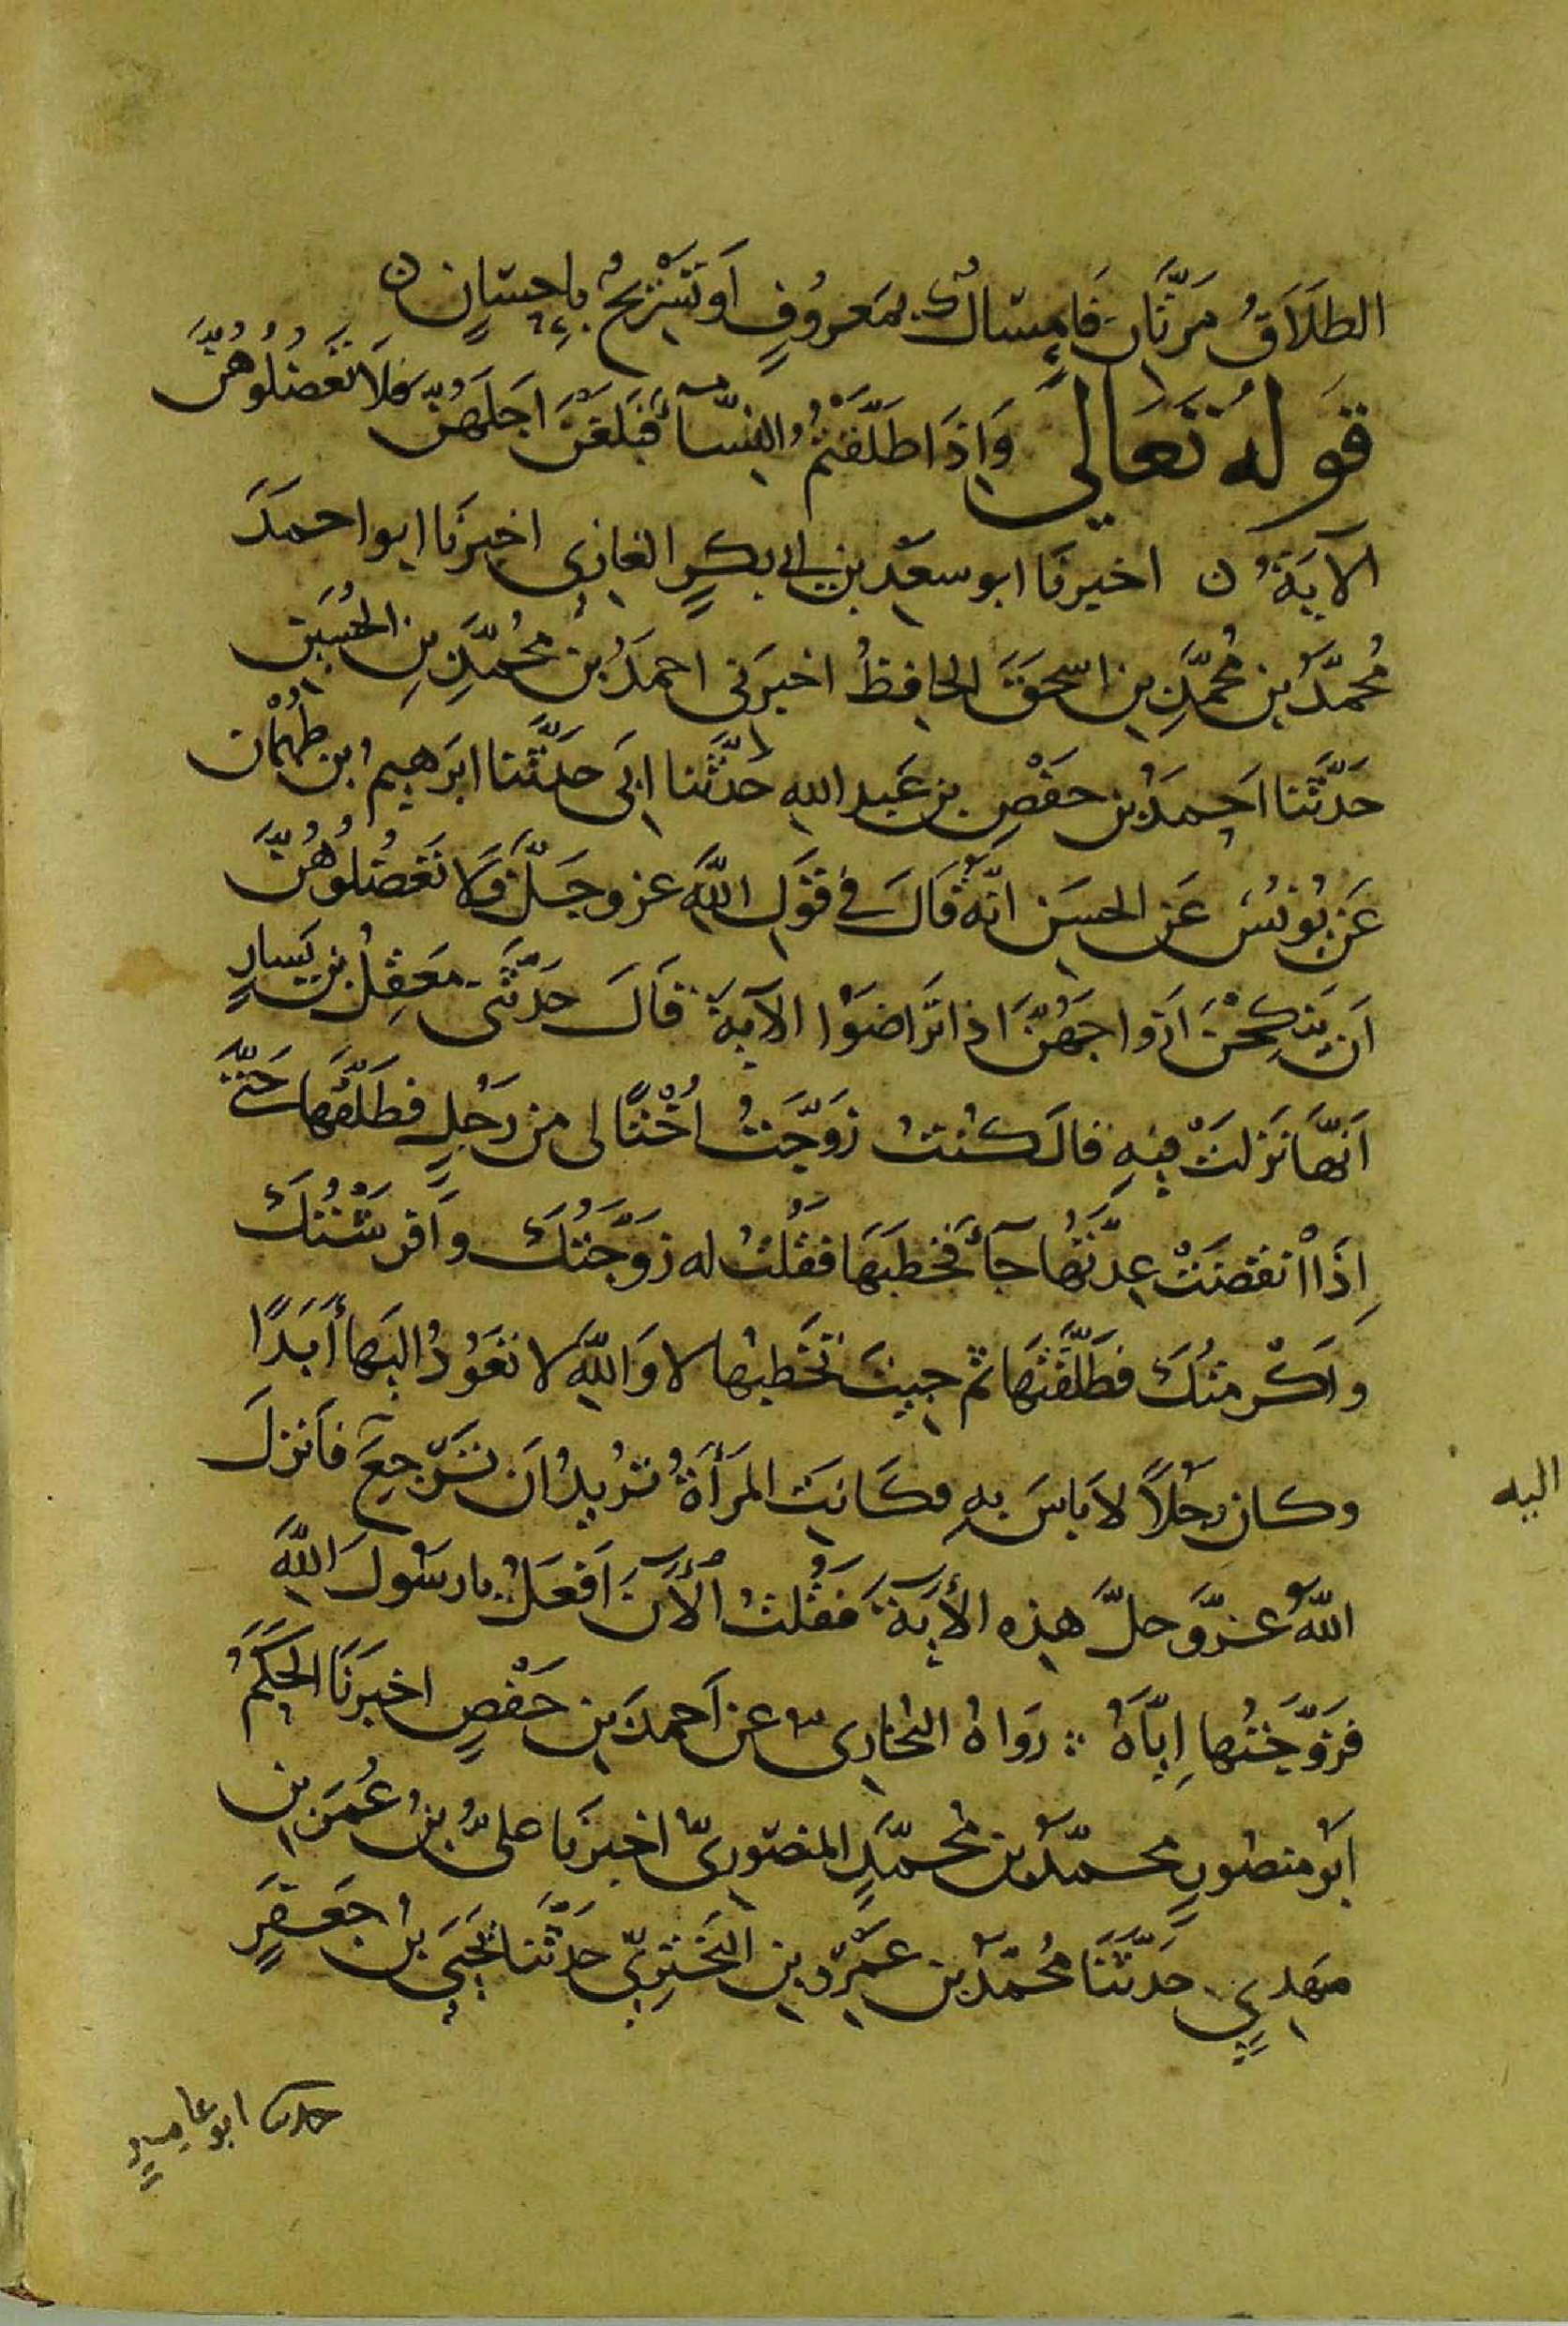 الطَلَاقُ مَرَّتَانِ فَإِمْسَاكٌ بِمَعرُوفٍ اَوتَسْرِيحٌ بِاِحسَانٍ ن
قَولُهُ تَعَالَى وَاِذَا طَلَّقْتُمُ النِّسَآءَ فَبَلَغْنَ اَجَلَهُنَّ فَلَا تَعْضُلُوهُنَّ
الآيَةُ ن اخبرنا ابو سعْد بن ابى بكرٍ الغازى اخبرَنَا ابو احمدَ
مُحمَّدُ بن مُحَمَّدِ بن اسحٰقَ الحافِظُ اخبرَنى احمدُ بنُ مُحمَّدِ بنِ الحُسَينِ
حَدَّثَنا احمدُ بن حفصِ بن عَبد اللهِ حَدَّثَنا ابى حَدَّثَنا ابرَهيم بن طَهْمَان
عَن يُونُسَ عَن الحسَن انَّهُ قَالَ فى قَوْلِ اللهِ عز وجَلَّ وَلَا تَعْضُلُوهُنَّ
اَن يَنكِحْنَ اَزواجَهُنَّ اذا تَرَاضَوْا الآيةَ قَالَ حَدَّثَنى مَعقِلُ بن يَسارٍ
اَنَّهَا نَزَلَتْ فِيهِ قالَ كُنتُ زَوَّجتُ اُخْتًا لى من رَجُلٍ فطَلَّقَهَا حَتَّى
اِذَا انقَضَتْ عِدَّتُهَا جآءَ فخَطَبَهَا فقُلْتُ له زَوَّجتُكَ وَاَفرَشْتُكَ
وَاَكْرمتُكَ فطَلَّقتَهَا ثم جِيتَ تَخْطِبُها لا وَاللهِ لا تعَودُ اليهَا اَبَدًا
وكان رجُلًا لا باسَ بهِ وكَانتِ المَرأةُ تُريدُ اَن تَرْجِعَ فانزلَ
اليه
اللهُ عزَّوَجلَّ هذِهِ الآيَةَ فقُلتُ اَلآنَ اَفعَلُ يا رسُولَ اللهِ
فَزَوَّجتُها اِيَّاهُ ؞ رَوَاهُ البُخارى عن اَحمدَ بن حَفْصٍ اخبرَنَا الحَكَمُ
اَبُو منصُورٍ محمّدُ بن مُحمّدٍ المنصُورىّ اخبرَنا علىُّ بنُ عُمرَ بن
مَهدِىٍّ حَدَّثَنَا مُحَمَّدُ بن عَمرِو بن البَخْتَرِىّ حَدَّثَنا يَحيَى بن جَعفَرٍ
حدثنا ابو عامِرٍ